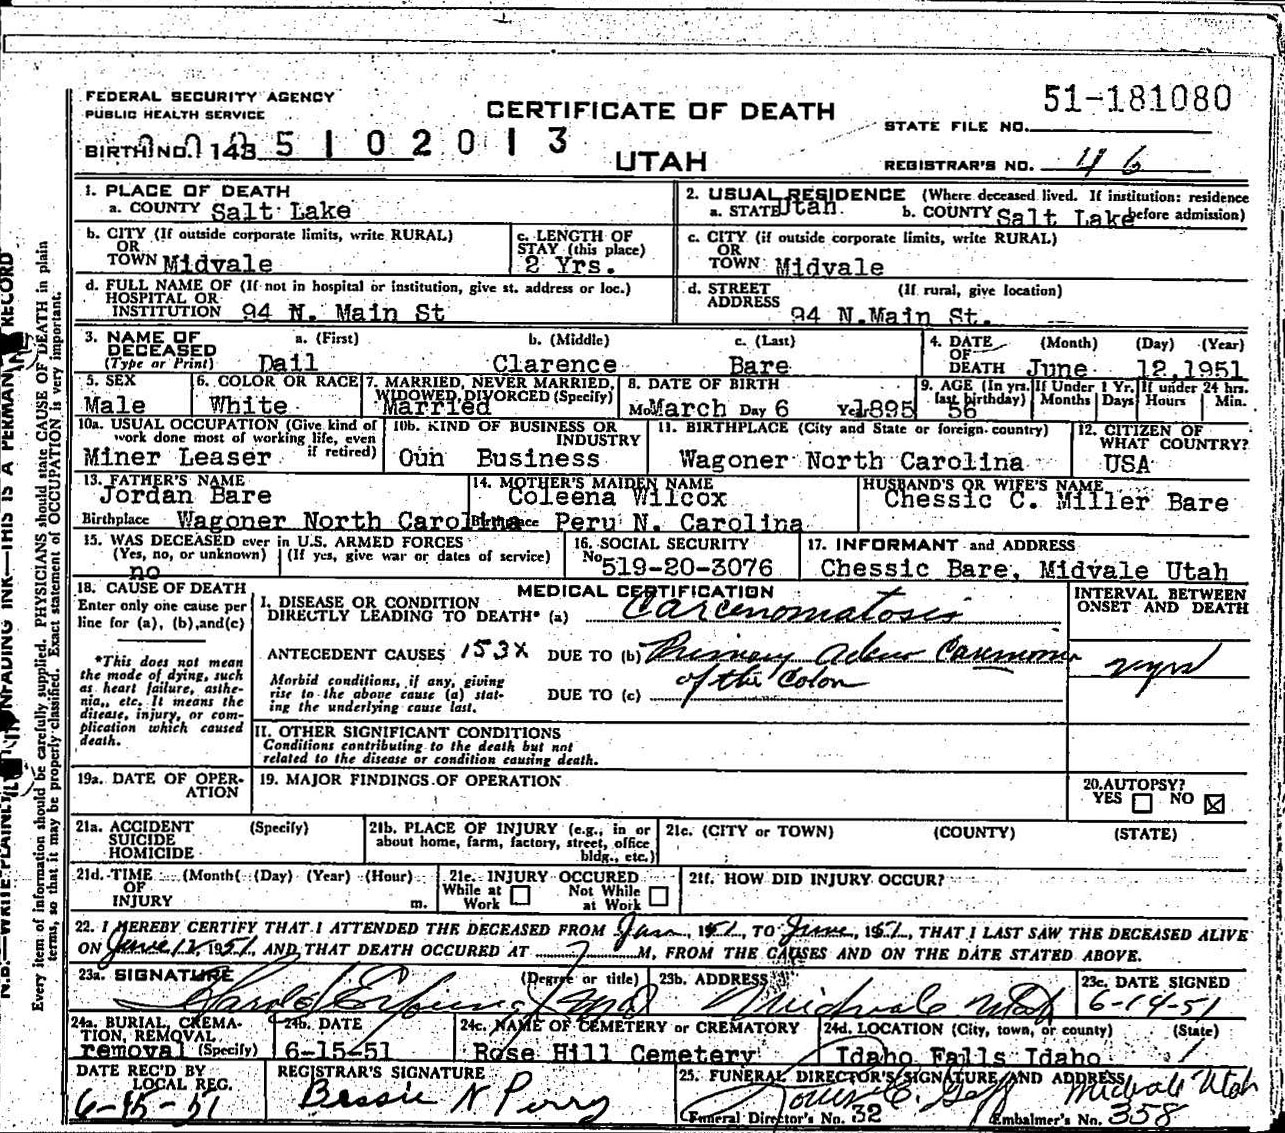 FEDERAL SECURITY AGENCY
PUBLIC HEALTH SERVICE
CERTIFICATE OF DEATH
UTAH
51-181080
STATE FILE NO.
BIRTH NO. 143 5 1 0 2 0 1 3
REGISTRAR'S NO. 46
1. PLACE OF DEATH
a. COUNTY Salt Lake
2. USUAL RESIDENCE (Where deceased lived. If institution: residence before admission)
a. STATE Utah b. COUNTY Salt Lake
b. CITY (If outside corporate limits, write RURAL)
OR
TOWN Midvale
c. LENGTH OF
STAY (this place)
2 Yrs.
c. CITY (if outside corporate limits, write RURAL)
OR
TOWN Midvale
d. FULL NAME OF (If not in hospital or institution, give st. address or loc.)
HOSPITAL OR
INSTITUTION 94 N. Main St
d. STREET (If rural, give location)
ADDRESS 94 N.Main St.
3. NAME OF DECEASED
(Type or Print)
a. (First) b. (Middle) c. (Last)
Dail Clarence Bare
4. DATE OF DEATH (Month) (Day) (Year)
June 12,1951
5. SEX
Male
6. COLOR OR RACE
White
7. MARRIED, NEVER MARRIED,
WIDOWED, DIVORCED (Specify)
Married
8. DATE OF BIRTH
Mo March Day 6 Year 1895
9. AGE (In yrs. last birthday) 56
If Under 1 Yr. Months Days
If under 24 hrs. Hours Min.
10a. USUAL OCCUPATION (Give kind of
work done most of working life, even
if retired)
Miner Leaser
10b. KIND OF BUSINESS OR
INDUSTRY
Oun Business
11. BIRTHPLACE (City and State or foreign country)
Wagoner North Carolina
12. CITIZEN OF
WHAT COUNTRY?
USA
13. FATHER'S NAME
Jordan Bare
Birthplace Wagoner North Carolina
14. MOTHER'S MAIDEN NAME
Coleena Wilcox
Birthplace Peru N. Carolina
HUSBAND'S OR WIFE'S NAME
Chessic C. Miller Bare
15. WAS DECEASED ever in U.S. ARMED FORCES
(Yes, no, or unknown) (If yes, give war or dates of service)
no
16. SOCIAL SECURITY
No 519-20-3076
17. INFORMANT and ADDRESS
Chessic Bare, Midvale Utah
18. CAUSE OF DEATH
Enter only one cause per
line for (a), (b), and (c)
*This does not mean
the mode of dying, such
as heart failure, asthe-
nia, etc. It means the
disease, injury, or com-
plication which caused
death.
MEDICAL CERTIFICATION
I. DISEASE OR CONDITION
DIRECTLY LEADING TO DEATH* (a) Carcenomatosis
ANTECEDENT CAUSES 153X DUE TO (b) Primary adeno Carcinoma
of the Colon
Morbid conditions, if any, giving
rise to the above cause (a) stat-
ing the underlying cause last.
DUE TO (c)
INTERVAL BETWEEN
ONSET AND DEATH
II. OTHER SIGNIFICANT CONDITIONS
Conditions contributing to the death but not
related to the disease or condition causing death.
19a. DATE OF OPER-
ATION
19. MAJOR FINDINGS OF OPERATION
20. AUTOPSY?
YES NO
21a. ACCIDENT (Specify)
SUICIDE
HOMICIDE
21b. PLACE OF INJURY (e.g., in or
about home, farm, factory, street, office
bldg., etc.)
21c. (CITY or TOWN) (COUNTY) (STATE)
21d. TIME (Month) (Day) (Year) (Hour)
OF
INJURY m.
21e. INJURY OCCURED
While at Work Not While at Work
21f. HOW DID INJURY OCCUR?
22. I HEREBY CERTIFY THAT I ATTENDED THE DECEASED FROM Jan, 1951, TO June, 1951, THAT I LAST SAW THE DECEASED ALIVE
ON June 12, 1951, AND THAT DEATH OCCURED AT 7 M, FROM THE CAUSES AND ON THE DATE STATED ABOVE.
23a. SIGNATURE (Degree or title)
Harold MD
23b. ADDRESS
Midvale Utah
23c. DATE SIGNED
6-14-51
24a. BURIAL, CREMA-
TION, REMOVAL
removal (Specify)
24b. DATE
6-15-51
24c. NAME OF CEMETERY or CREMATORY
Rose Hill Cemetery
24d. LOCATION (City, town, or county) (State)
Idaho Falls Idaho
DATE REC'D BY
LOCAL REG.
6-15-51
REGISTRAR'S SIGNATURE
Bessie N Perry
25. FUNERAL DIRECTOR'S SIGNATURE AND ADDRESS
Midvale Utah
Funeral Director's No. 32 Embalmer's No. 358
N.B.—WRITE PLAINLY UNFADING INK—THIS IS A PERMANENT RECORD
Every item of information should be carefully supplied. PHYSICIANS should state CAUSE OF DEATH in plain
terms, so that it may be properly classified. Exact statement of OCCUPATION is very important.